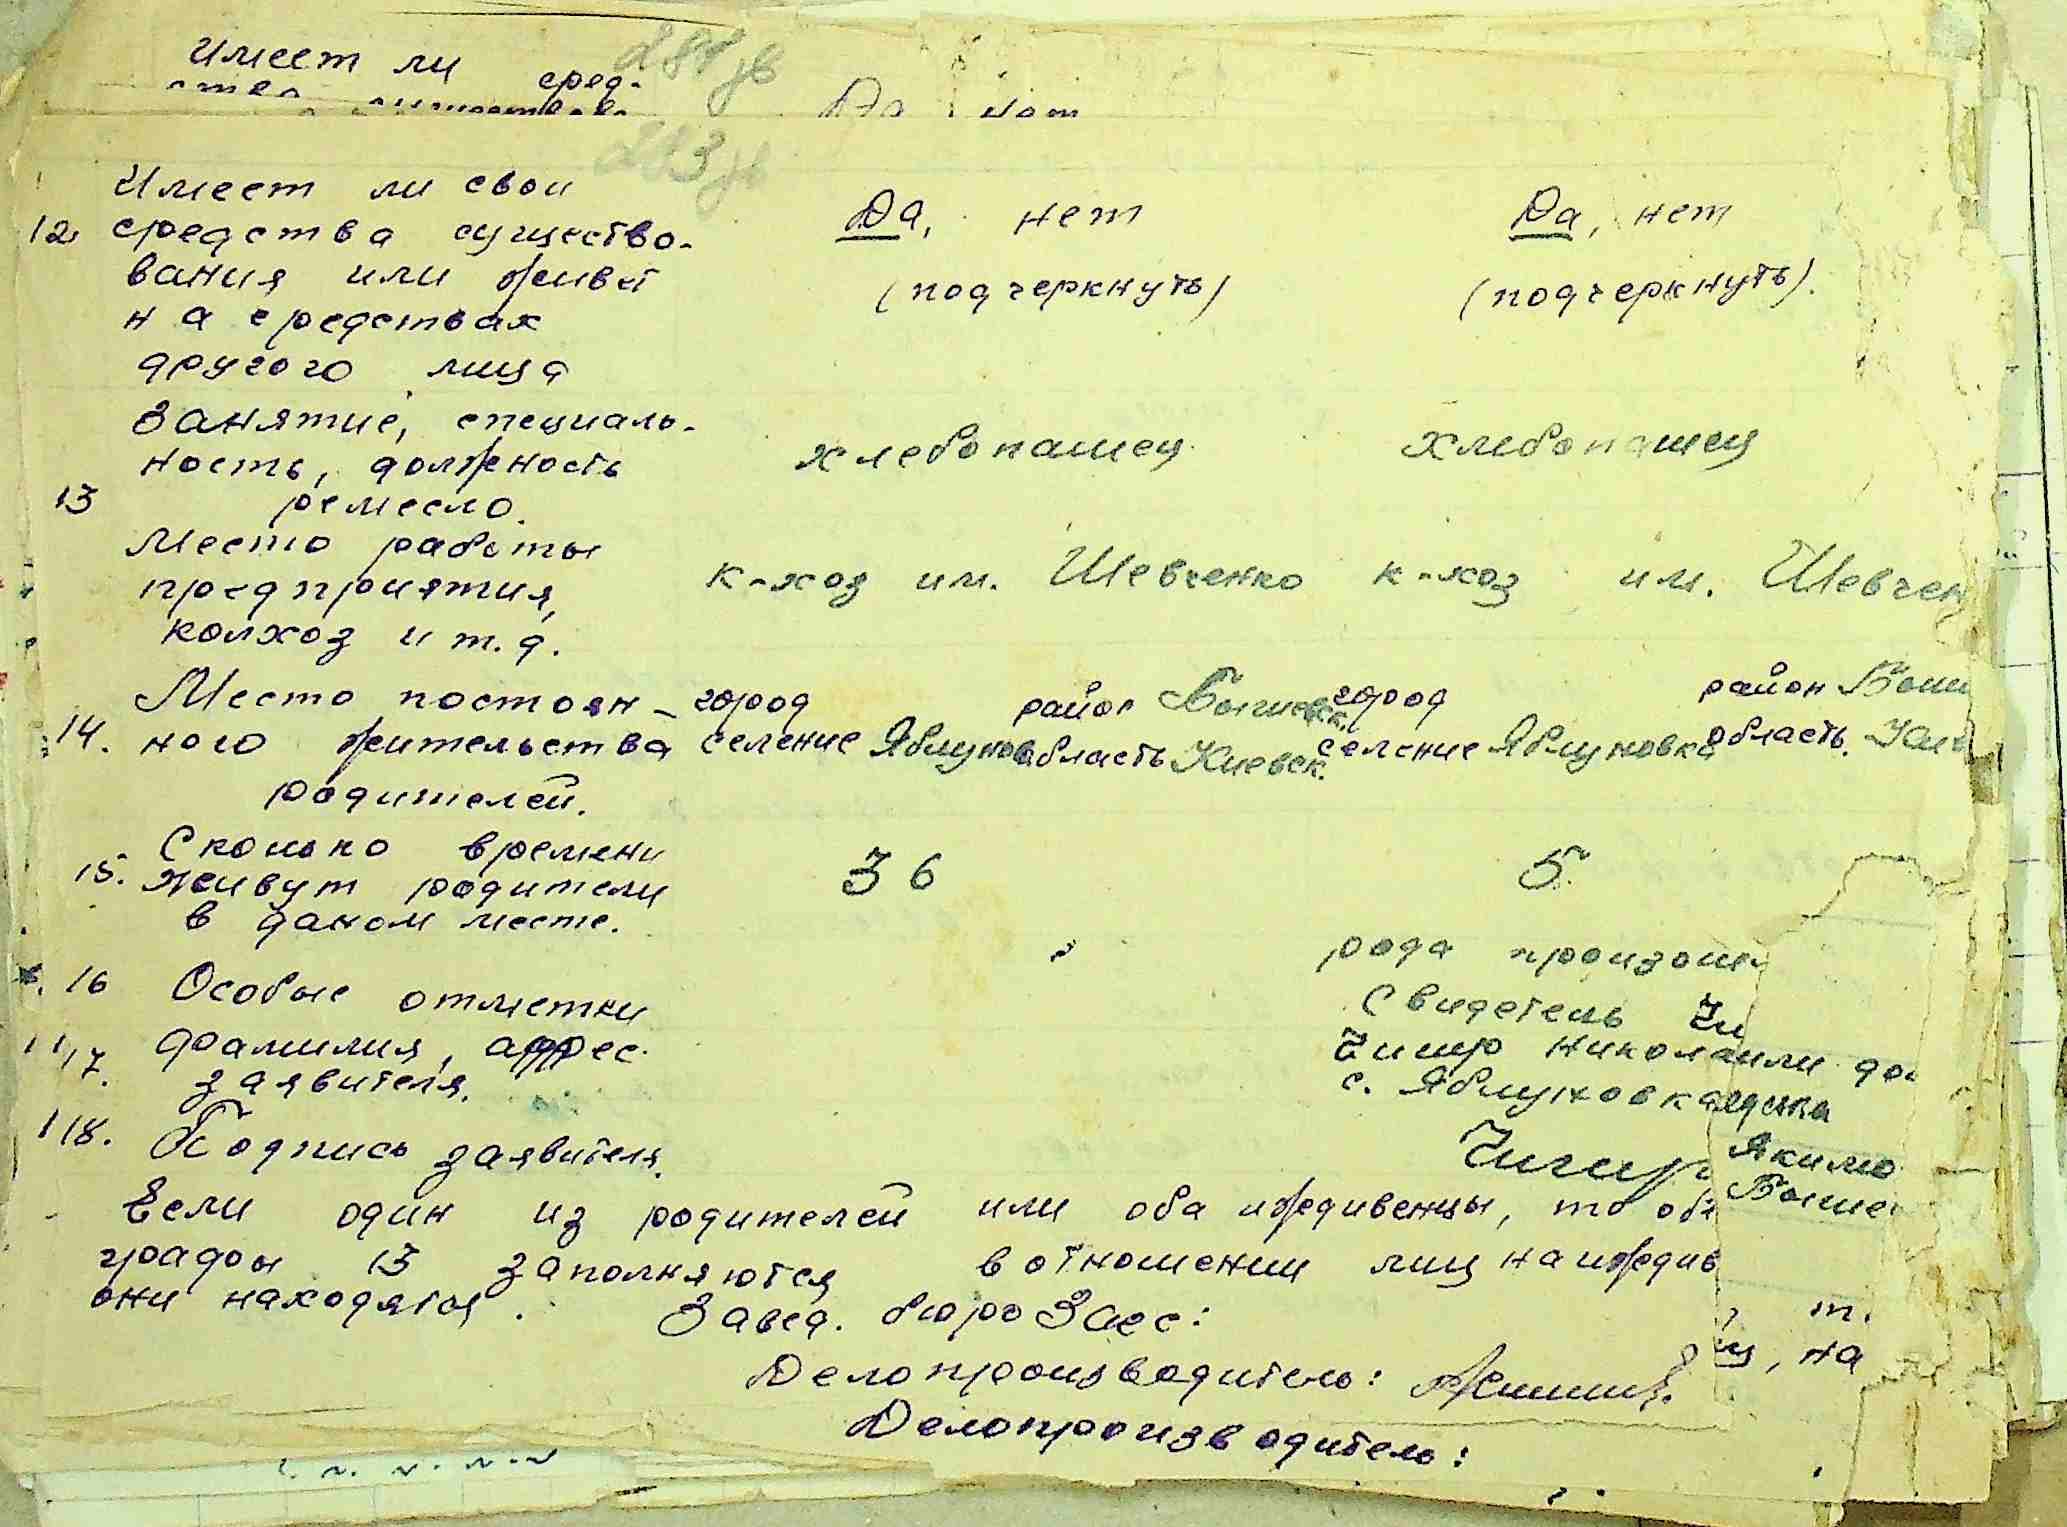 Имеет ли сред-
Да нет
Имеет ли свои
12. средства существо- Да, нет Да, нет
вания или живет (подчеркнуть) (подчеркнуть).
на средствах
другого лица
Занятие, специаль-
ность, должность хлебопашец хлебопашец
13 ремесло.
Место работы
предприятия, к-хоз им. Шевченко к-хоз им. Шевчен
колхоз и т.д.
Место постоян- город район Бышевск. город район Быш
14. ного жительства селение Яблунов область Киевск. селение Яблуновка область. Киев
родителей.
Сколько времени
15. живут родители 36 5.
в даном месте.
рода произош
16 Особые отметки Свидетель Чи
17. Фамилия, адрес Николаи или до
заявителя. с. Яблуновка
18. Подпись заявителя. Якимо
Если один из родителей или оба иждивенцы, то об Быше
графы 13 заполняются в отношении лиц на иждив
они находятся. Завед. бюро Загс: т.
Делопроизводитель: , на
Делопроизводитель: